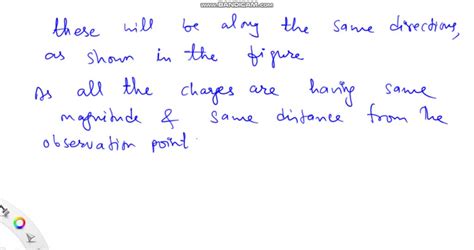 www.BANDICAM.com
these will be along the same directions,
as shown in the figure
As all the charges are having same
magnitude & same distance from the
observation point